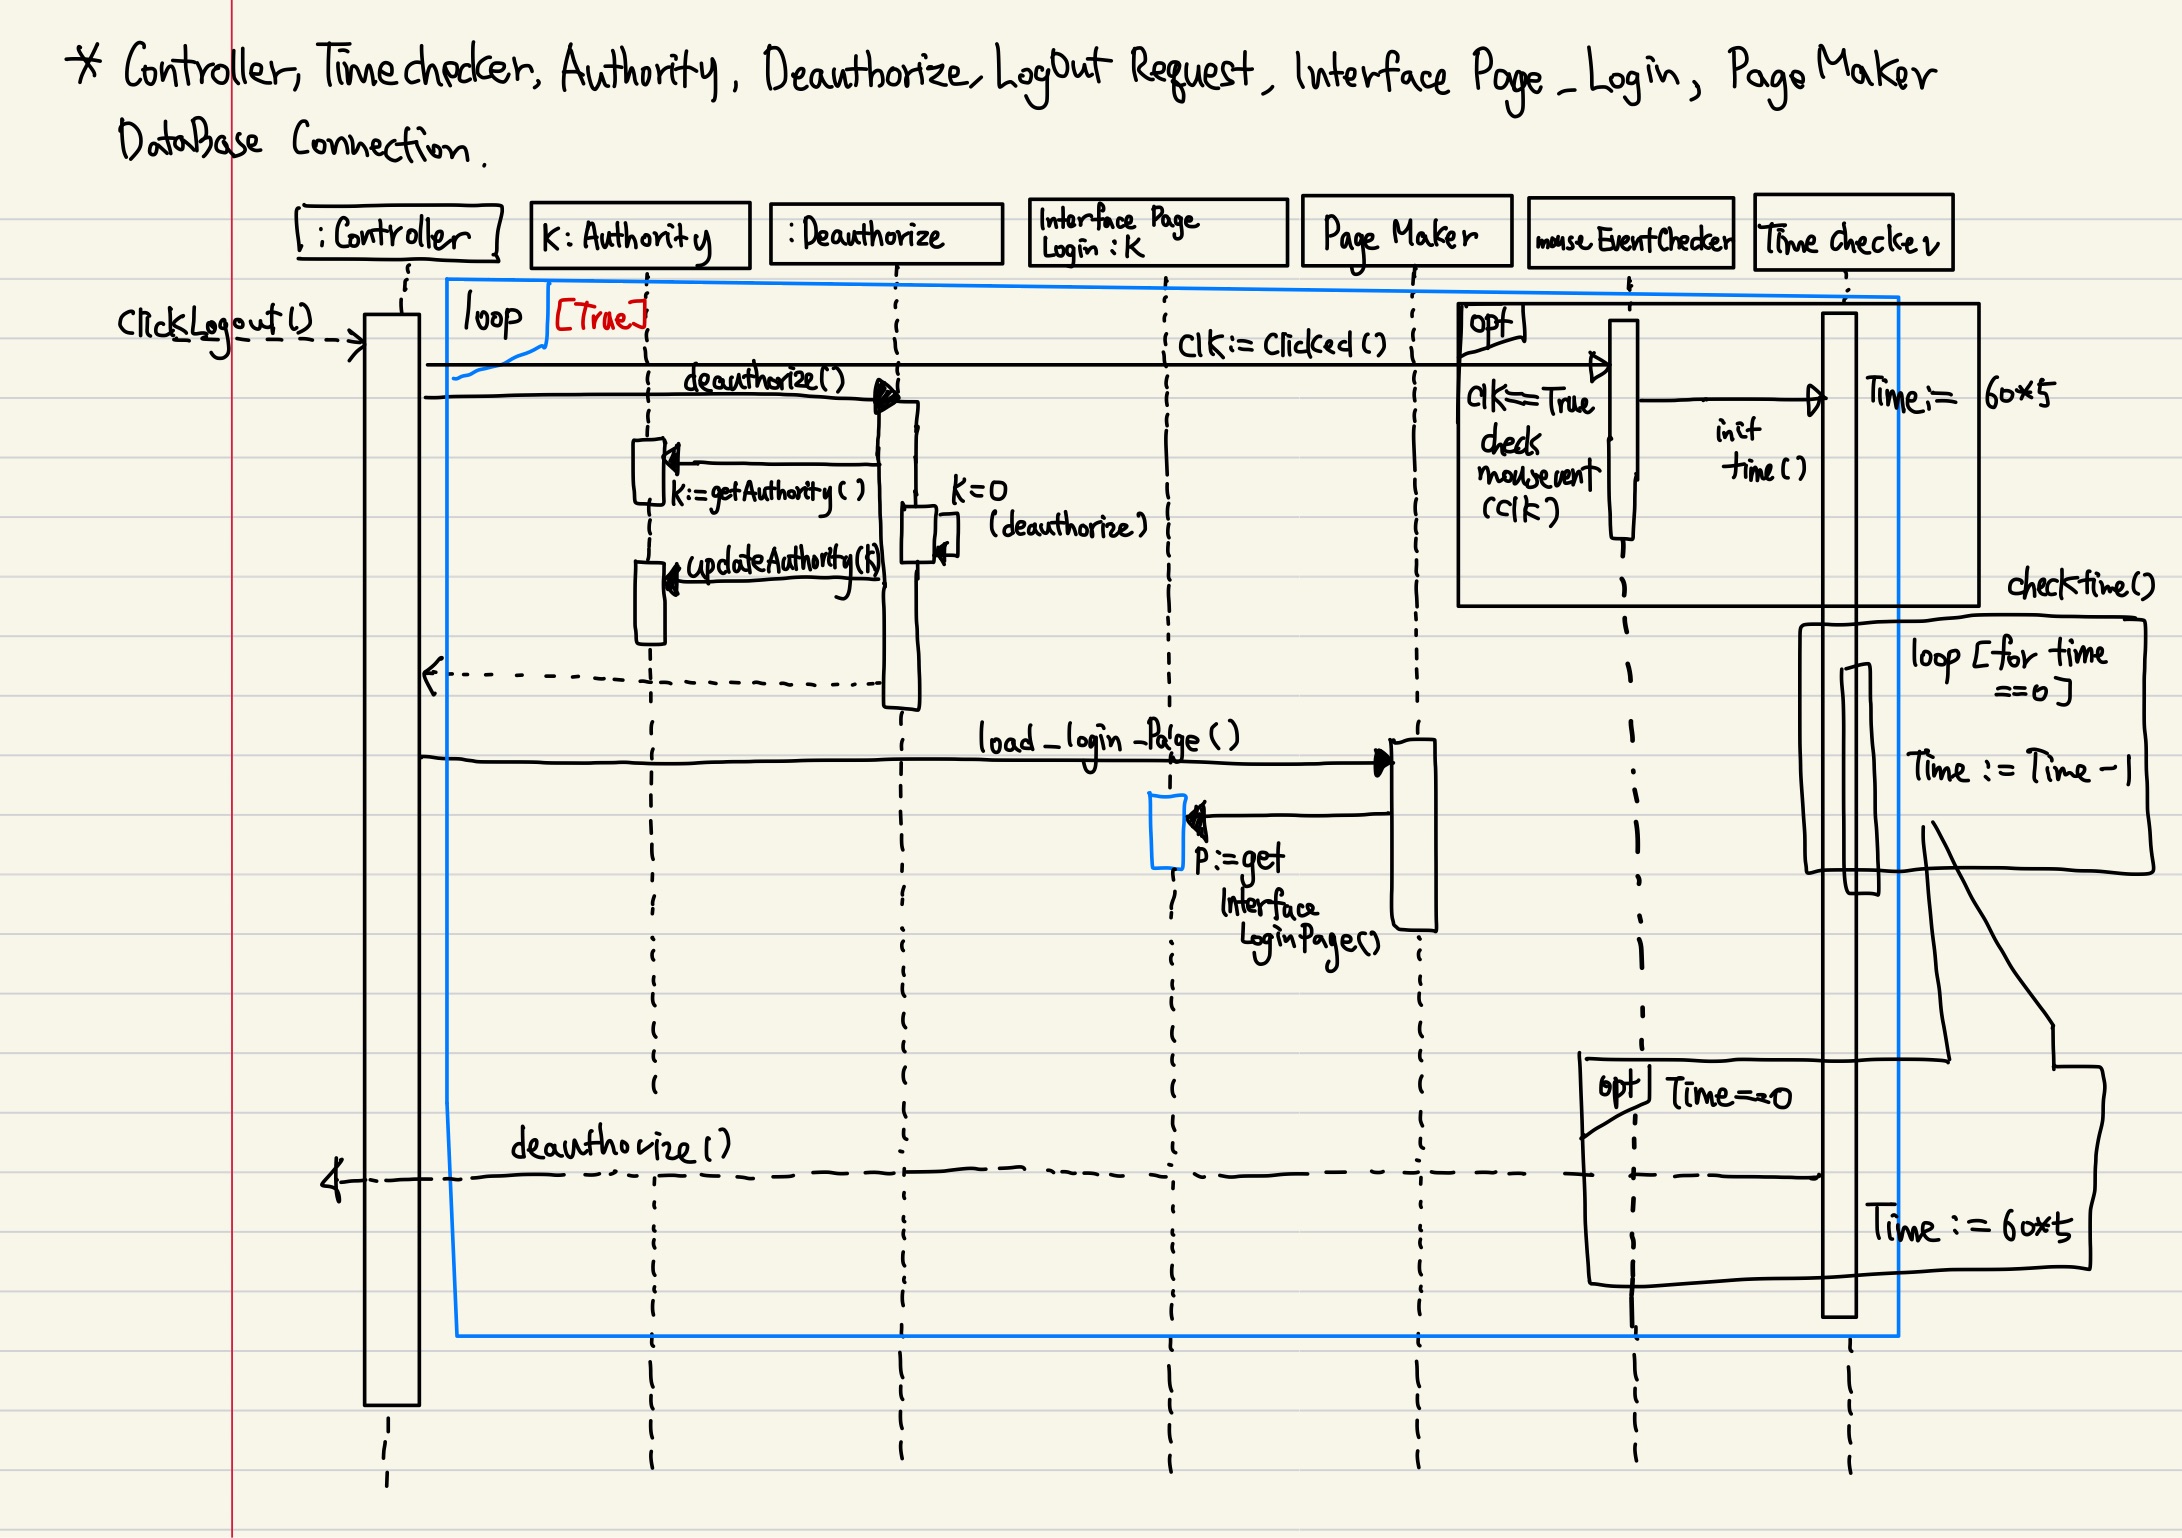 * Controller, Timechecker, Authority, Deauthorize, LogOut Request, Interface Page_Login, Page Maker
DataBase Connection.
: Controller
K: Authority
:Deauthorize
Interface Page
Login : K
Page Maker
mouse EventChecker
Time checker
ClickLogout()
loop
[True]
opt
Clk := Clicked()
deauthorize()
Clk==True
check
mousevent
(Clk)
init
time()
Time:= 60*5
K:=getAuthority()
K=0
(deauthorize)
updateAuthority(k)
checktime()
loop [for time
==0]
Time := Time -1
load_login_Page()
P:=get
Interface
LoginPage()
opt
Time==0
deauthorize()
Time := 60*5